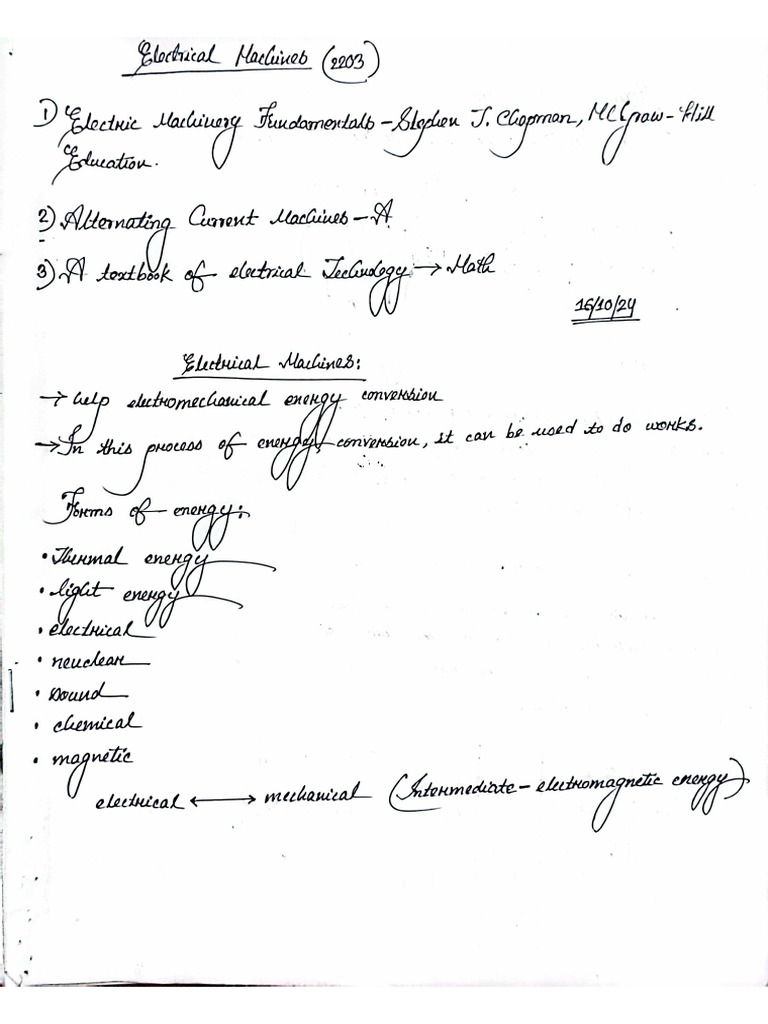 Electrical Machines (2203)
1) Electric Machinery Fundamentals - Stephen J. Chapman, McGraw-Hill
Education.
2) Alternating Current Machines - A.
3) A textbook of electrical Technology → Math
16/10/24
Electrical Machines:
→ help electromechanical energy conversion
→ In this process of energy conversion, it can be used to do works.
Forms of energy:
• Thermal energy
• light energy
• electrical
• neuclear
• sound
• chemical
• magnetic
electrical ⟷ mechanical (Intermediate - electromagnetic energy)